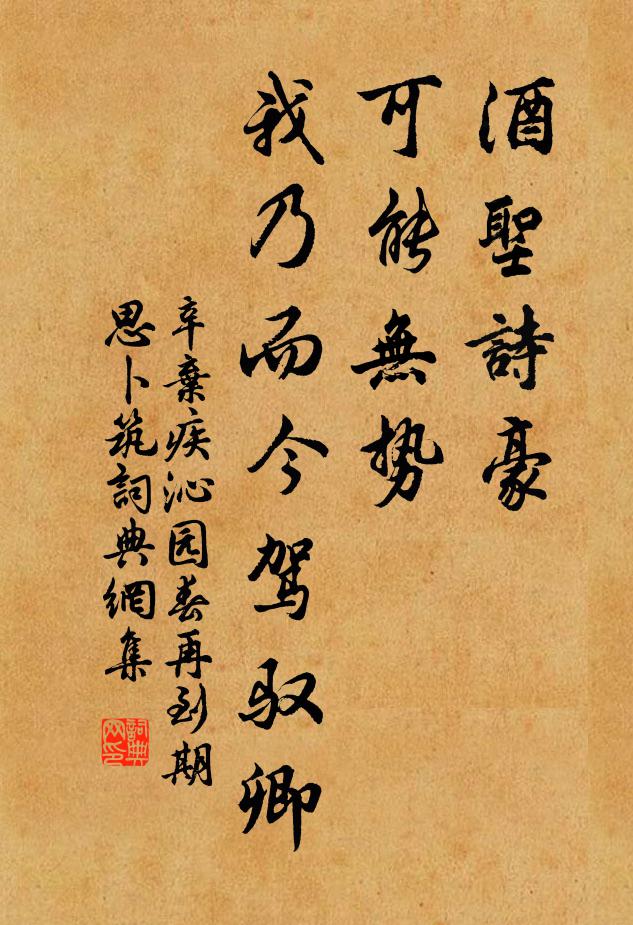 酒聖詩豪
可能無勢
我乃而今駕驭卿
辛棄疾沁园春再到期
思卜筑詞典網集
詞典
网印